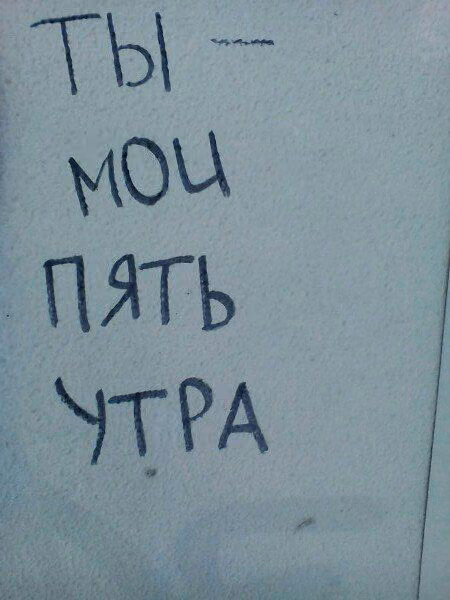 ТЫ —
МОИ
ПЯТЬ
УТРА